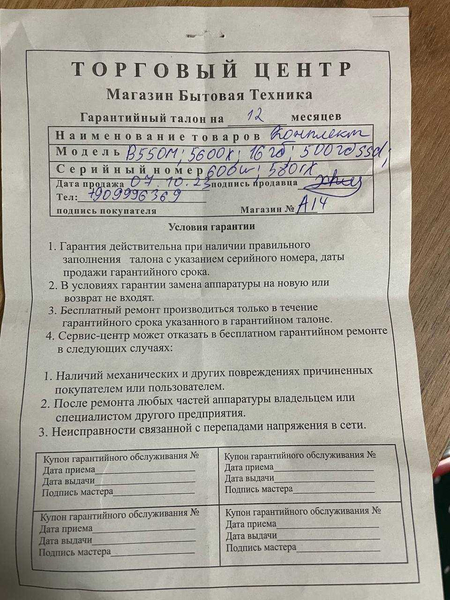 ТОРГОВЫЙ ЦЕНТР
Магазин Бытовая Техника
Гарантийный талон на 12 месяцев
Наименование товаров Комплект
Модель B550M; 5600X; 16гб; 500гб ssd;
Серийный номер 600w; 580rx
Дата продажа 07.10.23 подпись продавца
Тел: 7909996369
подпись покупателя Магазин № A14
Условия гарантии
1. Гарантия действительна при наличии правильного
заполнения талона с указанием серийного номера, даты
продажи гарантийного срока.
2. В условиях гарантии замена аппаратуры на новую или
возврат не входят.
3. Бесплатный ремонт производиться только в течение
гарантийного срока указанного в гарантийном талоне.
4. Сервис-центр может отказать в бесплатном гарантийном ремонте
в следующих случаях:
1. Наличий механических и других повреждения причиненных
покупателем или пользователем.
2. После ремонта любых частей аппаратуры владельцем или
специалистом другого предприятия.
3. Неисправности связанной с перепадами напряжения в сети.
Купон гарантийного обслуживания №
Дата приема
Дата выдачи
Подпись мастера
Купон гарантийного обслуживания №
Дата приема
Дата выдачи
Подпись мастера
Купон гарантийного обслуживания №
Дата приема
Дата выдачи
Подпись мастера
Купон гарантийного обслуживания №
Дата приема
Дата выдачи
Подпись мастера